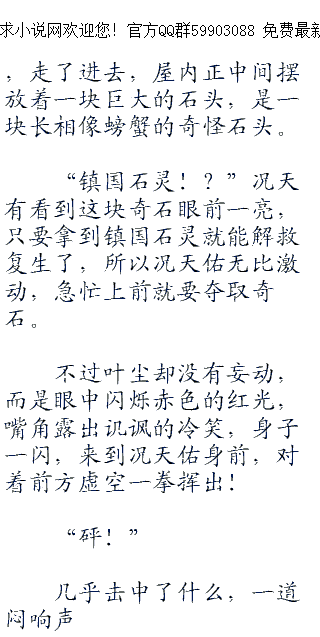 求小说网欢迎您！官方QQ群59903088 免费最新
，走了进去，屋内正中间摆
放着一块巨大的石头，是一
块长相像螃蟹的奇怪石头。
“镇国石灵！？”况天
有看到这块奇石眼前一亮，
只要拿到镇国石灵就能解救
复生了，所以况天佑无比激
动，急忙上前就要夺取奇
石。
不过叶尘却没有妄动，
而是眼中闪烁赤色的红光，
嘴角露出讥讽的冷笑，身子
一闪，来到况天佑身前，对
着前方虚空一拳挥出！
“砰！”
几乎击中了什么，一道
闷响声